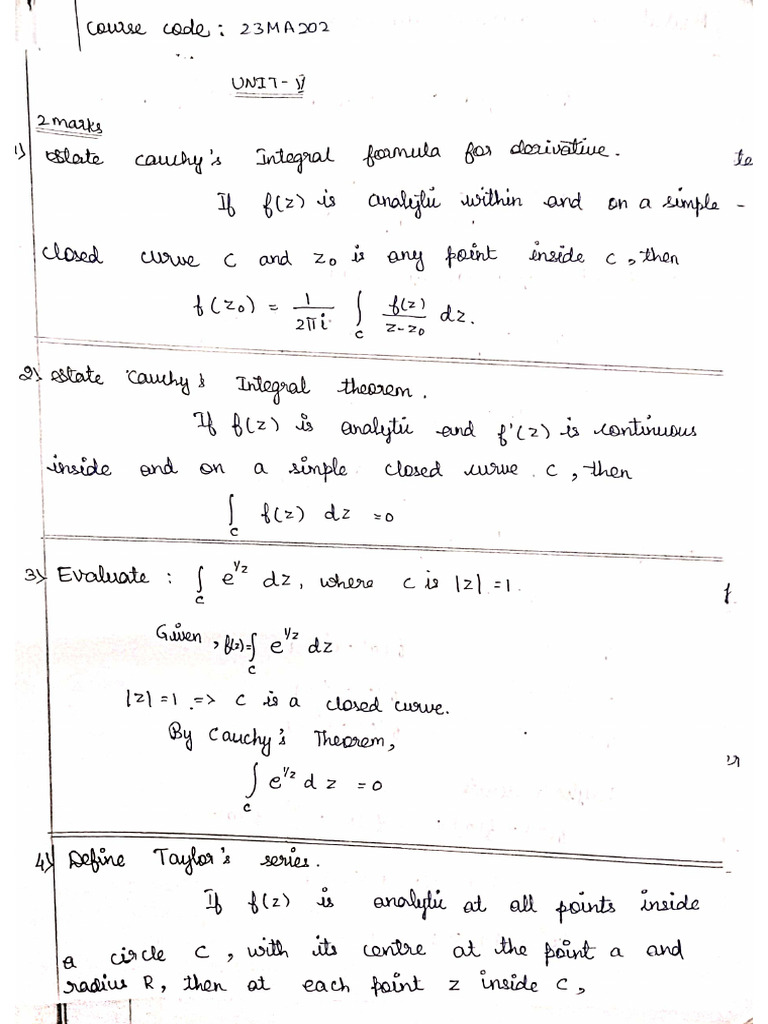 Course code: 23MA202
UNIT-V
2marks
1) State Cauchy's Integral formula for derivative.
If f(z) is analytic within and on a simple -
closed curve C and z₀ is any point inside C, then
f(z₀) = 1/2πi ∫_C f(z)/z-z₀ dz.
2) State Cauchy's Integral theorem.
If f(z) is analytic and f'(z) is continuous
inside and on a simple closed curve C, then
∫_C f(z) dz = 0
3) Evaluate : ∫_C e^1/z dz, where C is |z| = 1.
Given, f(z)=∫_C e^1/z dz
|z| = 1 => C is a closed curve.
By Cauchy's Theorem,
∫_C e^1/z dz = 0
4) Define Taylor's series.
If f(z) is analytic at all points inside
a circle C, with its centre at the point a and
radius R, then at each point z inside C,